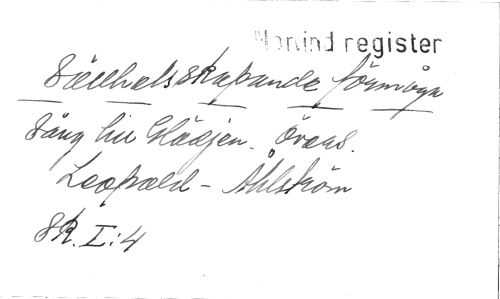 register
Sällhetsskapande förmåga
Sång till Glädjen. Övers.
Leopold - Åhlström
SK. I:4